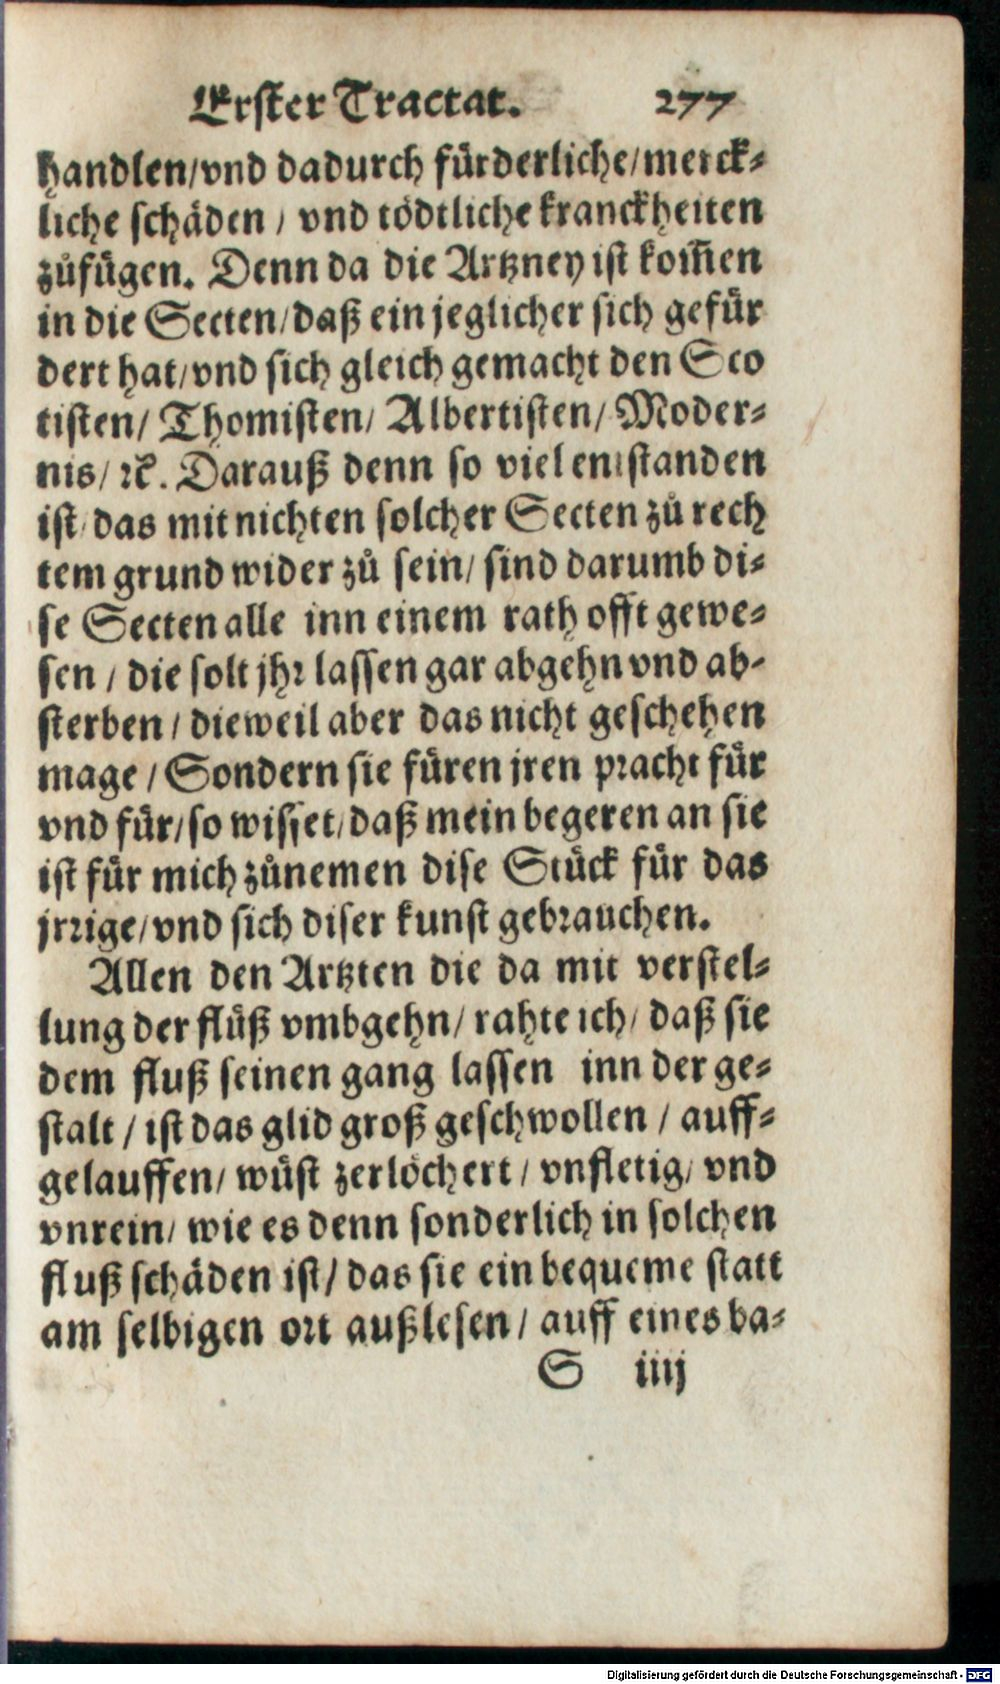 Erster Tractat. 277
handlen/vnd dadurch fürderliche/merck⸗
liche schäden / vnd tödtliche kranckheiten
zůfügen. Denn da die Artzney ist kom̃en
in die Secten/daß ein jeglicher sich gefür
dert hat/vnd sich gleich gemacht den Sco
tisten/ Thomisten/ Albertisten/ Moder⸗
nis/ ꝛc. Darauß denn so viel entstanden
ist/das mit nichten solcher Secten zů rech
tem grund wider zů sein/ sind darumb di⸗
se Secten alle inn einem rath offt gewe⸗
sen / die solt jhr lassen gar abgehn vnd ab⸗
sterben / dieweil aber das nicht geschehen
mage / Sondern sie füren jren pracht für
vnd für/so wisset/daß mein begeren an sie
ist für mich zůnemen dise Stück für das
jrrige/vnd sich diser kunst gebrauchen.
Allen den Artzten die da mit verstel⸗
lung der flüß vmbgehn/ rahte ich/ daß sie
dem fluß seinen gang lassen inn der ge⸗
stalt / ist das glid groß geschwollen / auff⸗
gelauffen/ wüst zerlöchert / vnfletig/ vnd
vnrein/ wie es denn sonderlich in solchen
fluß schäden ist/ das sie ein bequeme statt
am selbigen ort außlesen / auff eines ba⸗
S iiij
Digitalisierung gefördert durch die Deutsche Forschungsgemeinschaft - DFG